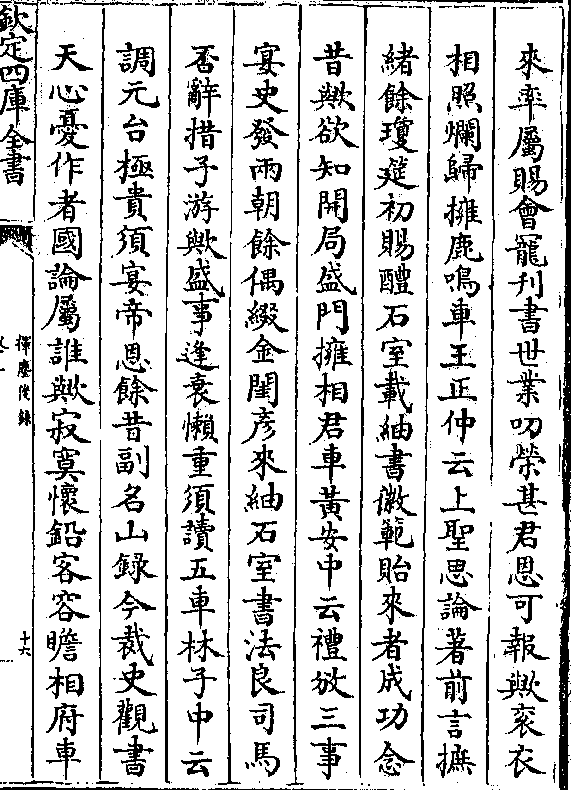 來率屬賜會寵刊書世業叨榮甚君恩可報歟衮衣
相照爛歸擁鹿鳴車王正仲云上聖思論著前言摭
緒餘瓊筵初賜醴石室載紬書徽範貽來者成功念
昔歟欲知開局盛門擁相君車黃安中云禮放三事
宴史發兩朝餘偶綴金閨彦來紬石室書法良司馬
否辭措子游歟盛事逢衰懶重須讀五車林子中云
調元台極貴須宴帝恩餘昔副名山録今裁史觀書
天心憂作者國論屬誰歟寂寞懷鉛客容瞻相府車
欽定四庫全書
揮麈後錄
十六